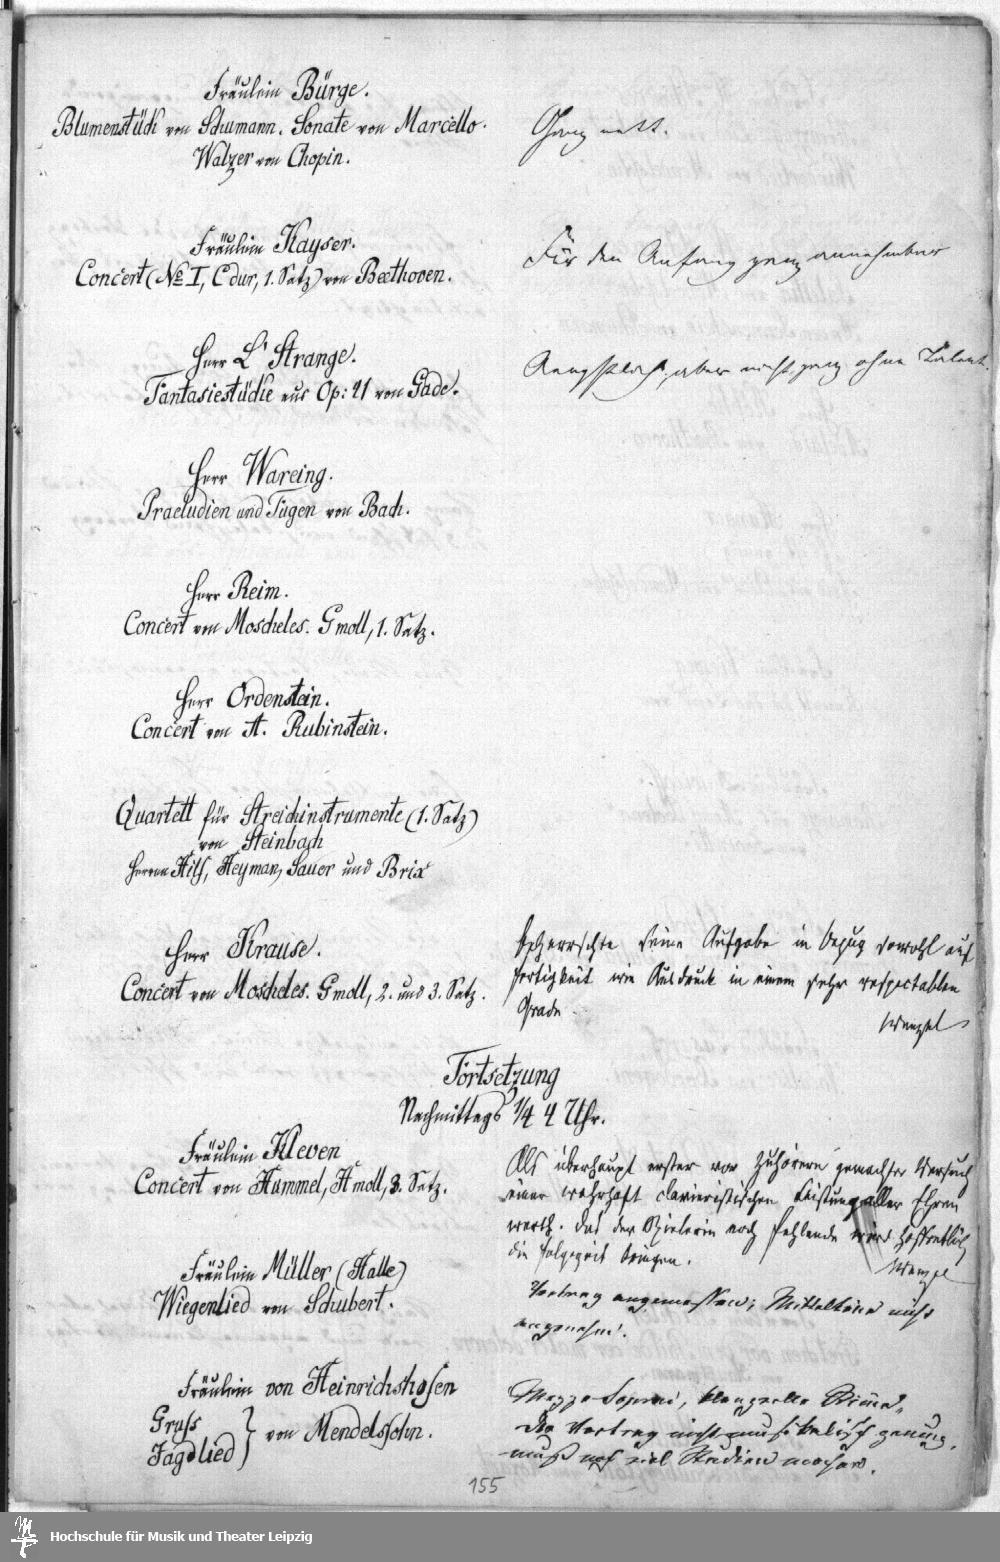 Fräulein Bürge.
Blumenstück von Schumann. Sonate von Marcello.
Walzer von Chopin.
Ganz nett.
Fräulein Kayser.
Concert (No I, C dur, 1. Satz) von Beethoven.
Für den Anfang ganz annehmbar
Herr L'Strange.
Fantasiestücke aus Op: 41 von Gade.
Aengstlich, aber nicht ganz ohne Talent.
Herr Wareing.
Praeludien und Fugen von Bach.
Herr Reim.
Concert von Moscheles. G moll, 1. Satz.
Herr Ordenstein.
Concert von A. Rubinstein.
Quartett für Streichinstrumente (1. Satz)
von Steinbach
Herren Hilf, Heyman, Sauer und Brix
Herr Krause.
Concert von Moscheles. G moll, 2. und 3. Satz.
beherrschte seine Aufgabe in Bezug sowohl auf
Fertigkeit wie Ausdruck in einem sehr respectablen
Grade
Wenzel
Fortsetzung
Nachmittags 1/4 4 Uhr.
Fräulein Kleven
Concert von Hummel, H moll, 3. Satz.
Als überhaupt erster vor Zuhörern gemachter Versuch
einer wahrhaft clavieristischen Leistung aller Ehren
werth. Das der Spielerin noch fehlende wird hoffentlich
die Folgezeit bringen.
Wenzel
Fräulein Müller (Halle)
Wiegenlied von Schubert.
Vortrag angemessen; Mitteltöne nicht
angenehm.
Fräulein von Heinrichshofen
Gruss
Jagdlied } von Mendelssohn.
Mezzo-Sopran, klangvolle Stimme.
Der Vortrag nicht musikalisch genung,
muß noch viel Studien machen.
155
Hochschule für Musik und Theater Leipzig